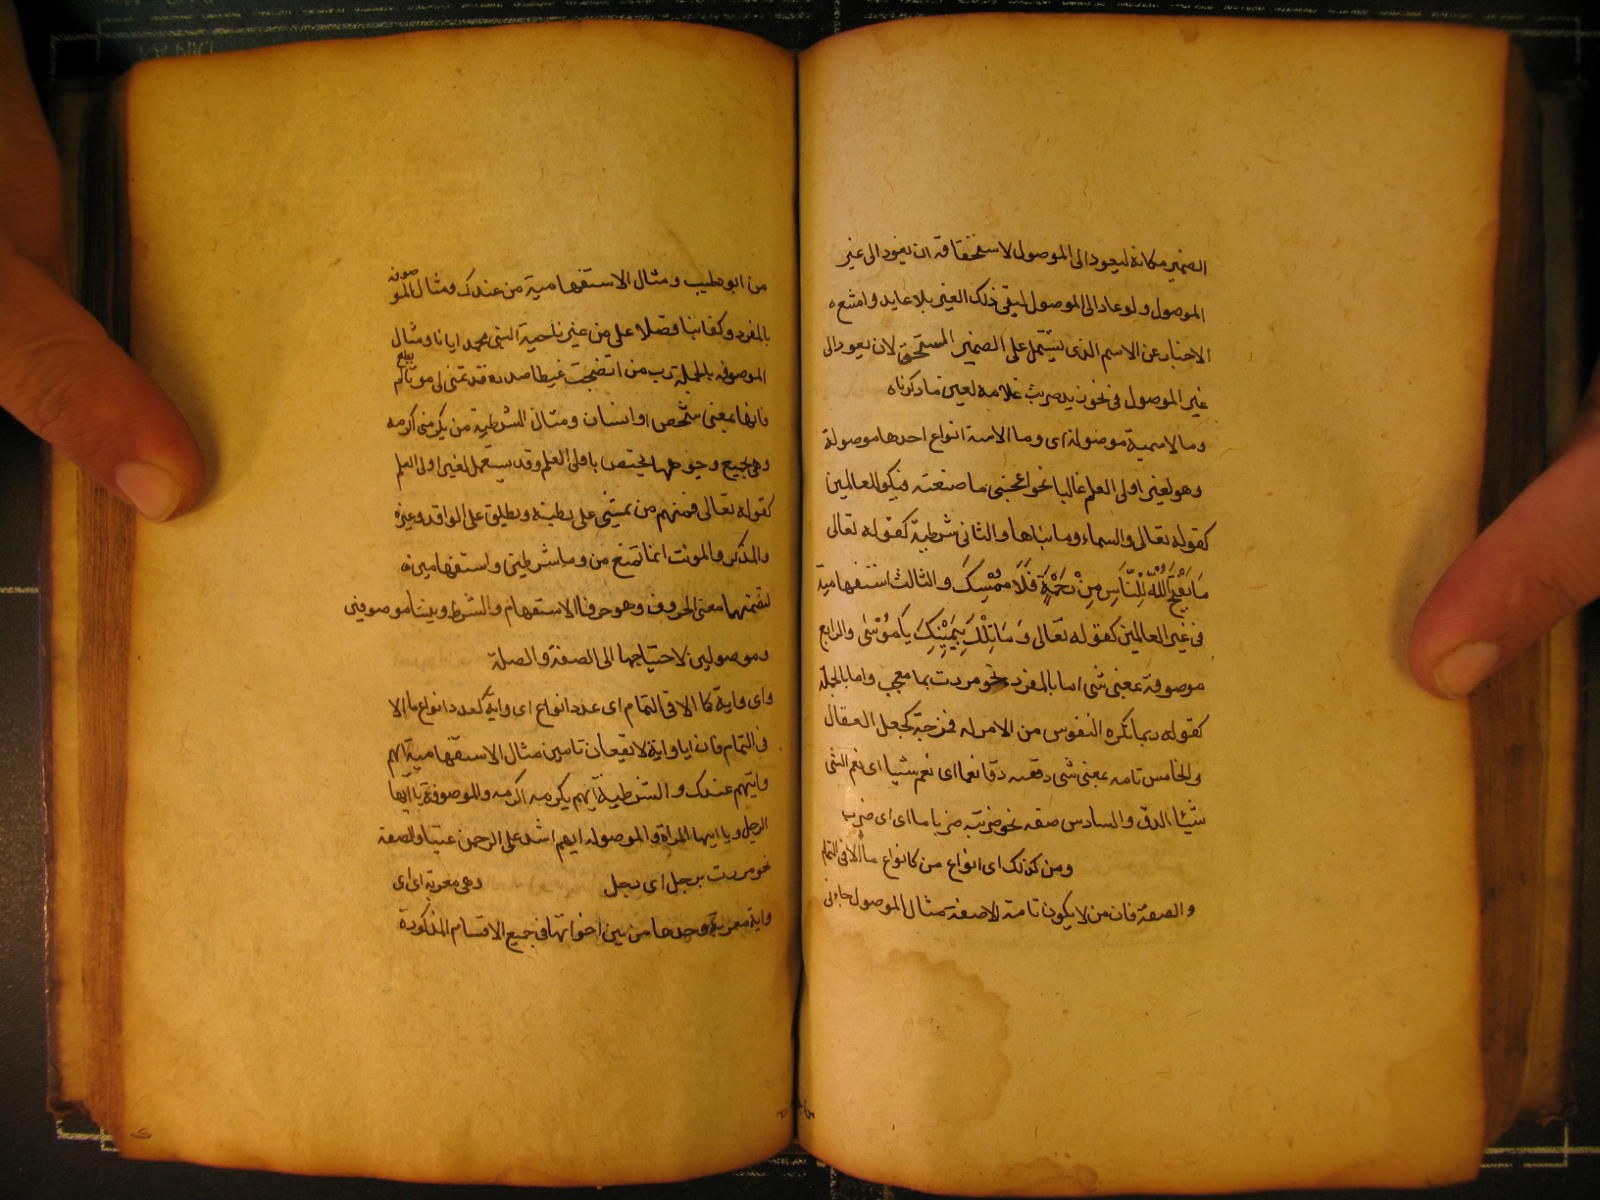 الضمير مكانه ليعود الى الموصول لاستحقاقه ان يعود الى غير
الموصول ولو عاد الى الموصول لبقى ذلك الغير بلا عايد وامتنع
الاخبار عن الاسم الذى يشتمل على الضمير المستحق لان يعود الى
غير الموصول فى نحو زيد ضربت غلامه لعين ما ذكرناه
وما الاسمية موصولة اى وما الاسمية انواع احدها موصولة
وهو لغير اولى العلم غالبا نحو اعجبنى ما صنعته العالمين
كقوله تعالى والسماء وما بناها والثانى شرطية كقوله تعالى
مَا يَفْتَحِ اللّٰهُ لِلنَّاسِ مِنْ رَحْمَةٍ فَلَا مُمْسِكَ والثالث استفهامية
فى غير العالمين كقوله تعالى وَمَا تِلْكَ بِيَمِينِكَ يَا مُوسٰى والرابع
موصوفة بمعنى شى اما بالمفرد نحو مررت بما معجب واما بالجملة
كقوله ربما تكره النفوس من الامر له فرجة كحل العقال
والخامس تامه بمعنى شى دققته دقا نعما اى نعم شيا اى نعم الشى
شيئا الدق والسادس صفه نحو ضربته ضربا ما اى اى ضرب
ومن كذلك اى انواع من كانواع ما الا فى التمام
والصفة فان من لا يكون تامة الا صفة مثال الموصول جاءنى
من ابوه طيب ومثال الاستفهامية من عندك ومثال الموصوفه
بالمفرد وكفا بنا فضلا على من غيرنا حب النبى محمد ايانا ومثال
الموصوفه بالجملة رب من انضجت غيظا صدره قد تمنى لى موتا لم يطع
فانها بمعنى شخص او انسان ومثال الشرطية من يكرمنى اكرمه
وهى بجميع وجوهها يختص باولى العلم وقد يستعمل لغير اولى العلم
كقوله تعالى فمنهم من يمشى على بطنه ويطلق على الواحد وغيره
والمذكر والمونث انما تمنع من وما شرطيتين واستفهاميتين
لتضمنهما معنى الحروف وهو حرفا الاستفهام والشرط وبينا موصوفتين
وموصولين لاحتياجهما الى الصفة والصلة
واى واية كما الا فى التمام اى عدد انواع اى واية كعدد انواع ما الا
فى التمام فان ايا واية لا يقعان تامين مثال الاستفهامية ايهم
وايتهم عندك والشرطية ايهم يكرمه اكرمه والموصوفة يا ايها
الرجل ويا ايتها المراة والموصوله ايهم اشد على الرحمن عتيا والصفه
نحو مررت برجل اى رجل وهى معربة اى اى
واية معربة وحدها من بين اخواتها فى جميع الاقسام المذكورة